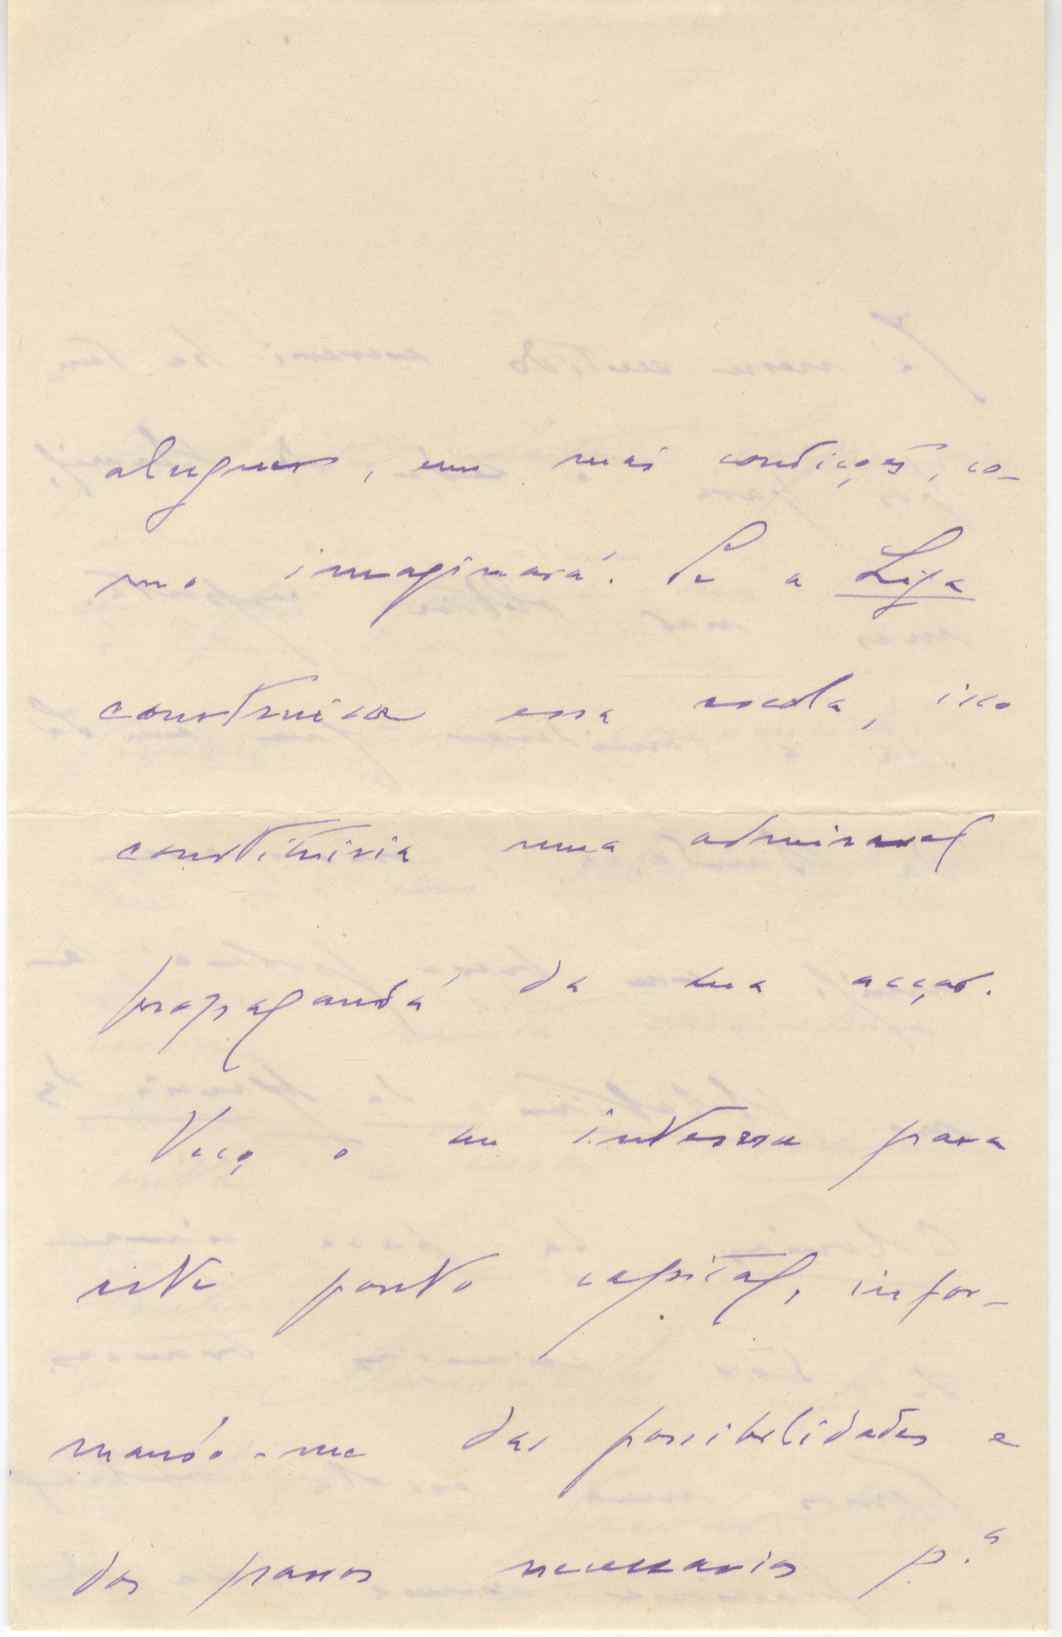 alugueres, em más condições, co-
mo imaginará. Se a Liga
construisse essa escola, isso
constituiria uma admiravel
propaganda da sua acção.
Peço o seu interesse para
este ponto capital, infor-
mando-me das possibilidades e
dos passos necessarios p.ª